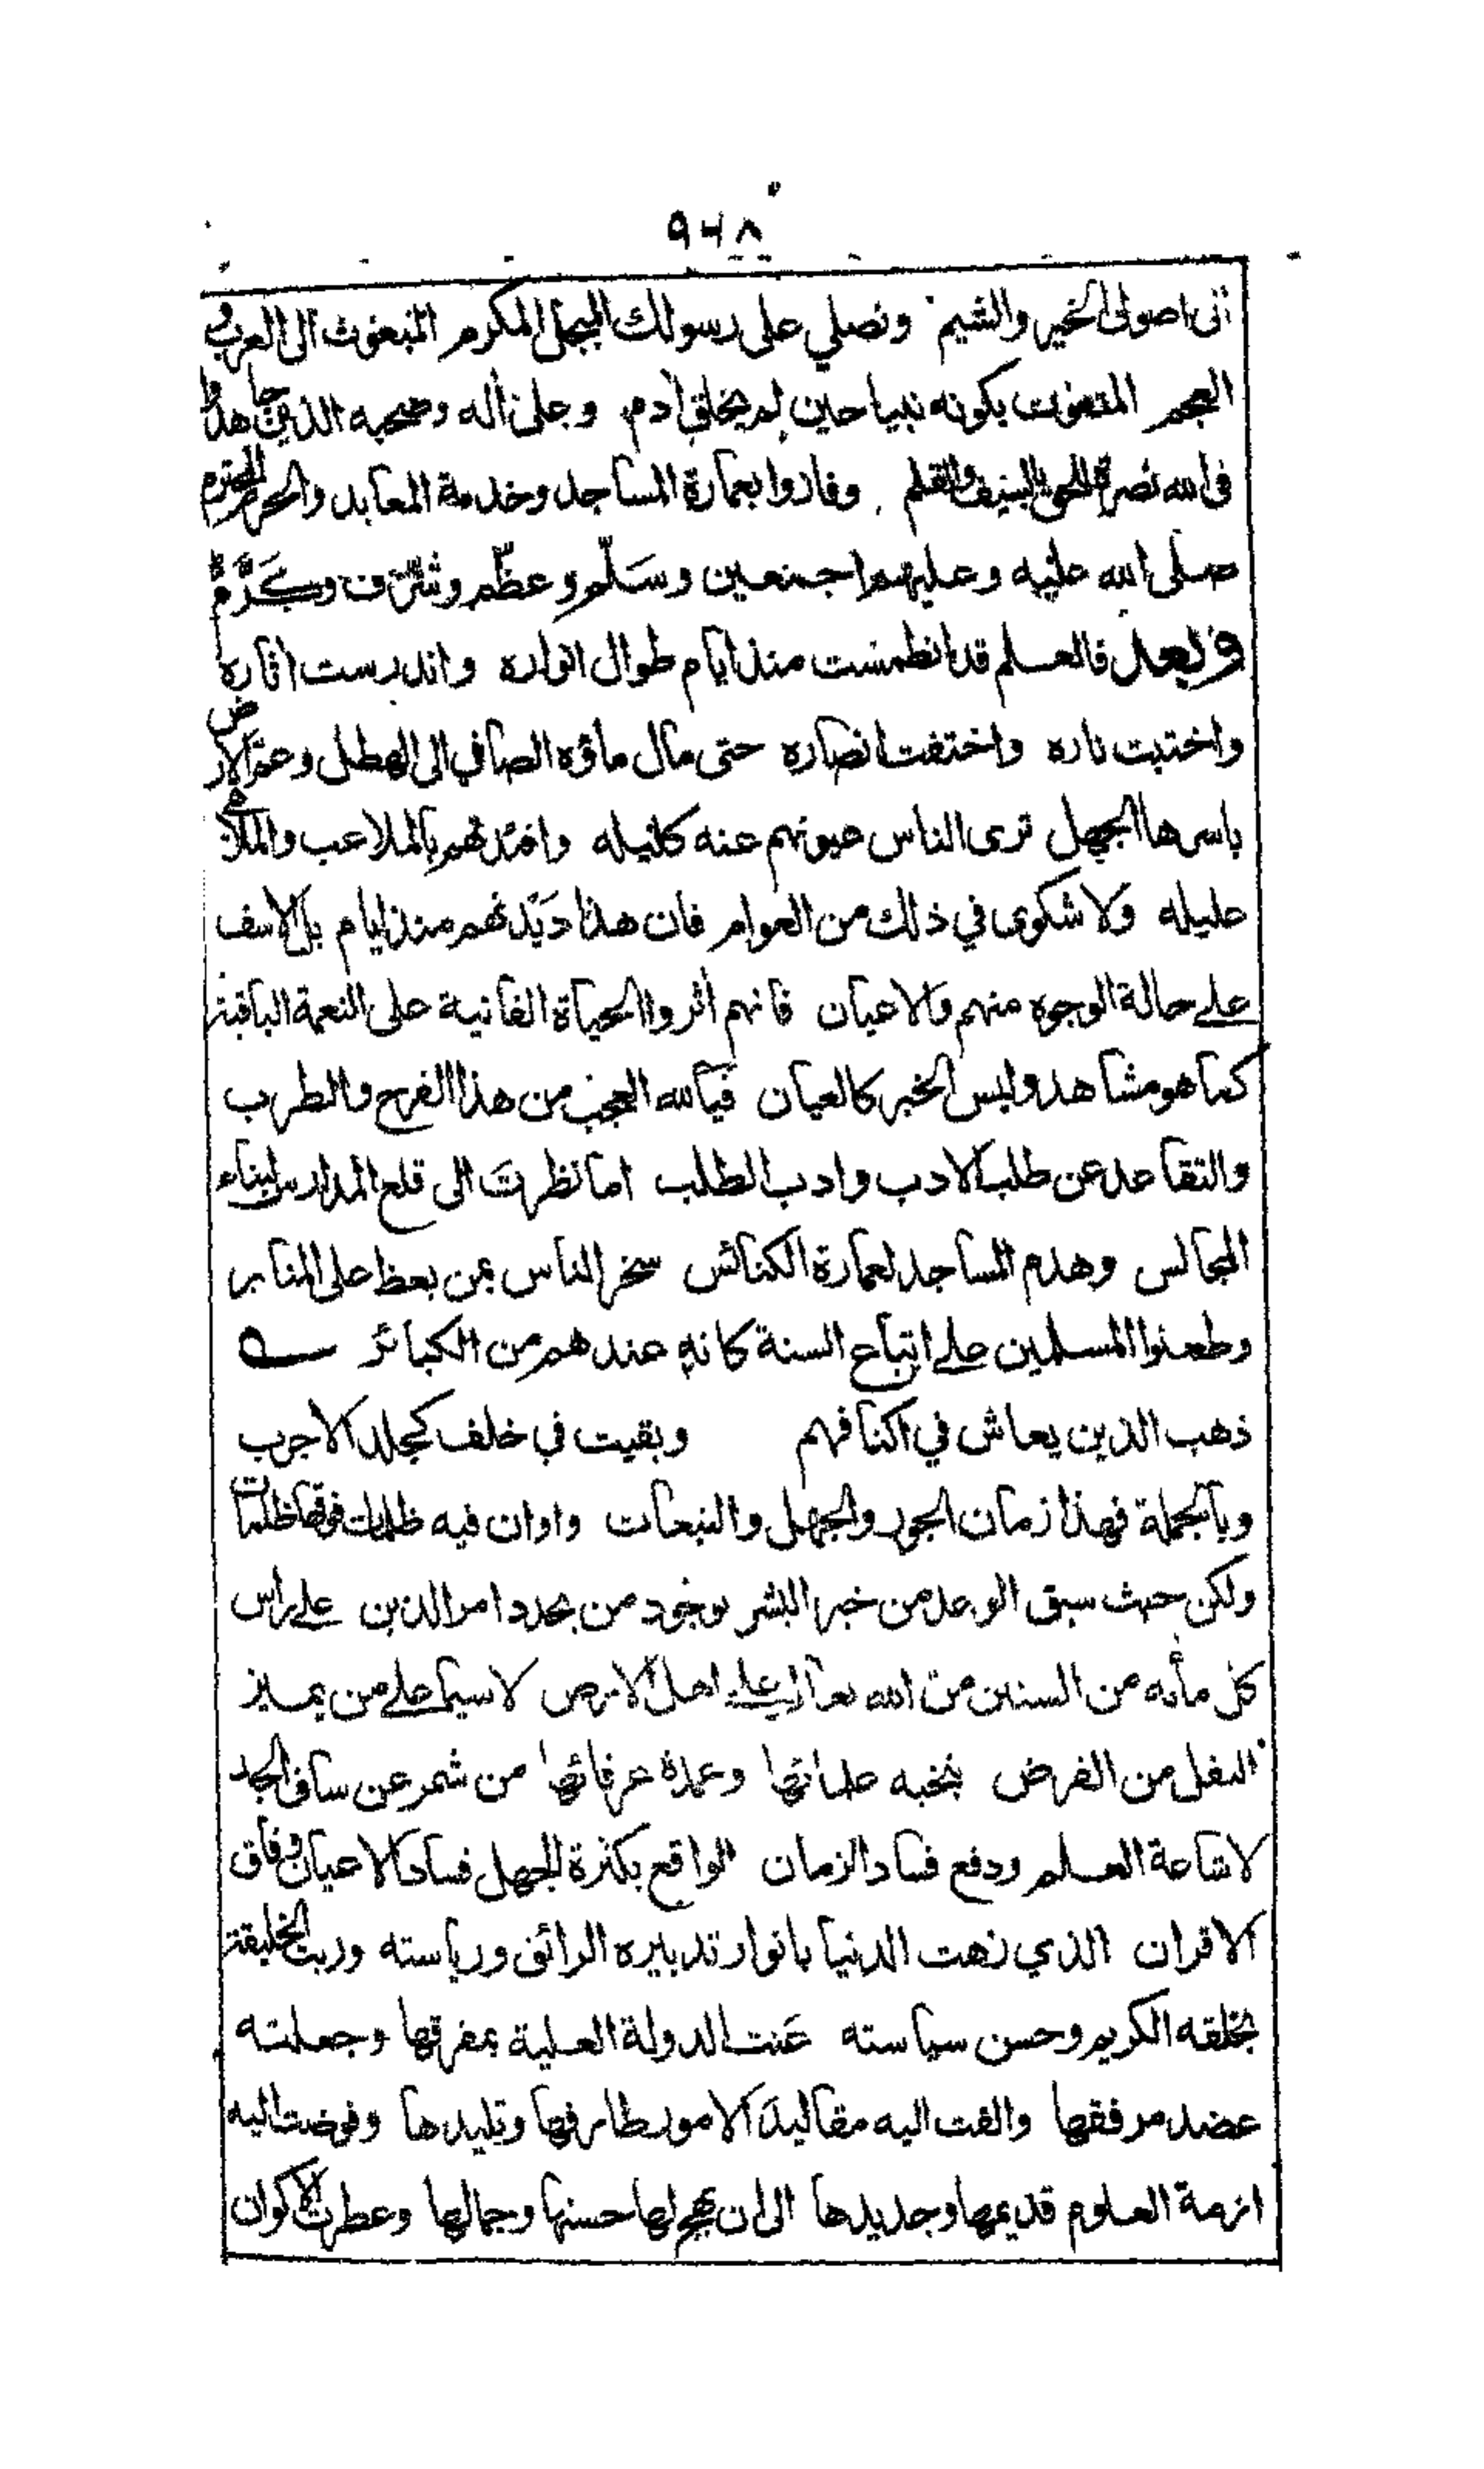 ٩٤٨
الى اصول الخير والشيم ونصلي على رسولك المبجل المكرم المبعوث الى العرب و
العجم المنعوت بكونه نبيا حين لم يخلق آدم وعلى آله وصحبه الذين جاهدوا
في الله نصرة للحق بالسيف والقلم وفازوا بعمارة المساجد وخدمة المعابد والحرم المحترم
صلى الله عليه وعليهم اجمعين وسَلّم وعظّم وشرّف وكَرَّم
وبعد فالعلم قد انطمست منذ ايام طوال انواره واندرست اثاره
واختبت ناره واختفت انصاره حتى مال ماؤه الصافي الى الهطل وعمّ الارض
باسرها الجهل ترى الناس عيونهم عنه كليله وافئدتهم بالملاعب والملاهي
عليله ولا شكوى في ذلك من العوام فان هذا دَيدنهم منذ ايام بل الاسف
على حالة الوجوه منهم والاعيان فانهم آثروا الحياة الفانية على النعمة الباقية
كما هو مشاهد وليس الخبر كالعيان فيا لله العجب من هذا الفرح والطرب
والتقاعد عن طلب الادب وادب الطلب اما نظرتَ الى قلع المدارس لبناء
المجالس وهدم المساجد لعمارة الكنائس سخر الناس بمن يعظ على المنابر
وطعنوا المسلمين على اتباع السنة كانه عندهم من الكبائر
ذهب الذين يعاش في اكنافهم وبقيت في خلف كجلد الاجرب
وبالجملة فهذا زمان الجور والجهل والتبعات واوان فيه ظلمات فوقها ظلمات
ولكن حيث سبق الوعد من خير البشر بوجود من يجدد امر الدين على راس
كل مأئه من السنين منّ الله تعالى على اهل الارض لا سيما على من يميز
النفل من الفرض بنخبه علمائها وعمدة عرفائها من شمر عن ساق الجد
لاشاعة العلم ودفع فساد الزمان الواقع بكثرة الجهل فساد الاعيان وفاق
الاقران الذي زهت الدنيا بانوار تدبيره الرائق ورياسته وربت الخليقة
بخلقه الكريم وحسن سياسته عَنت الدولة العلية بمفرقها وجعلته
عضد مرفقها والقت اليه مقاليد الامور طارفها وتليدها وفوضت اليه
ازمة العلوم قديمها وجديدها الى ان بهج لها حسنها وجمالها وعطرت الاكوان